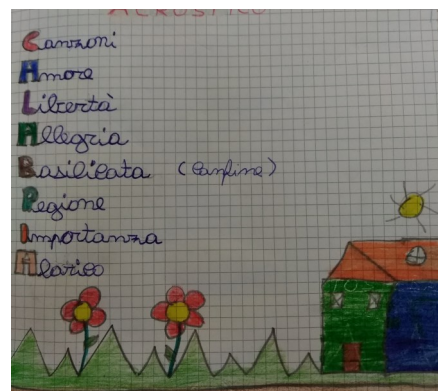 ACROSTICO
Canzoni
Amore
Libertà
Allegria
Basilicata (Confine)
Regione
Importanza
Alarico